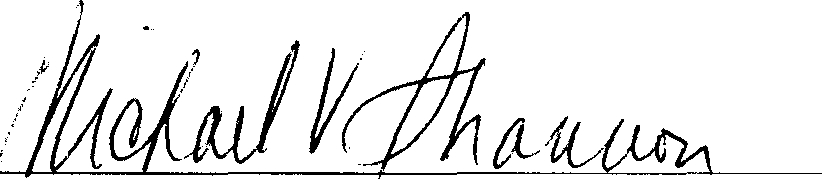 Michael V Shannon